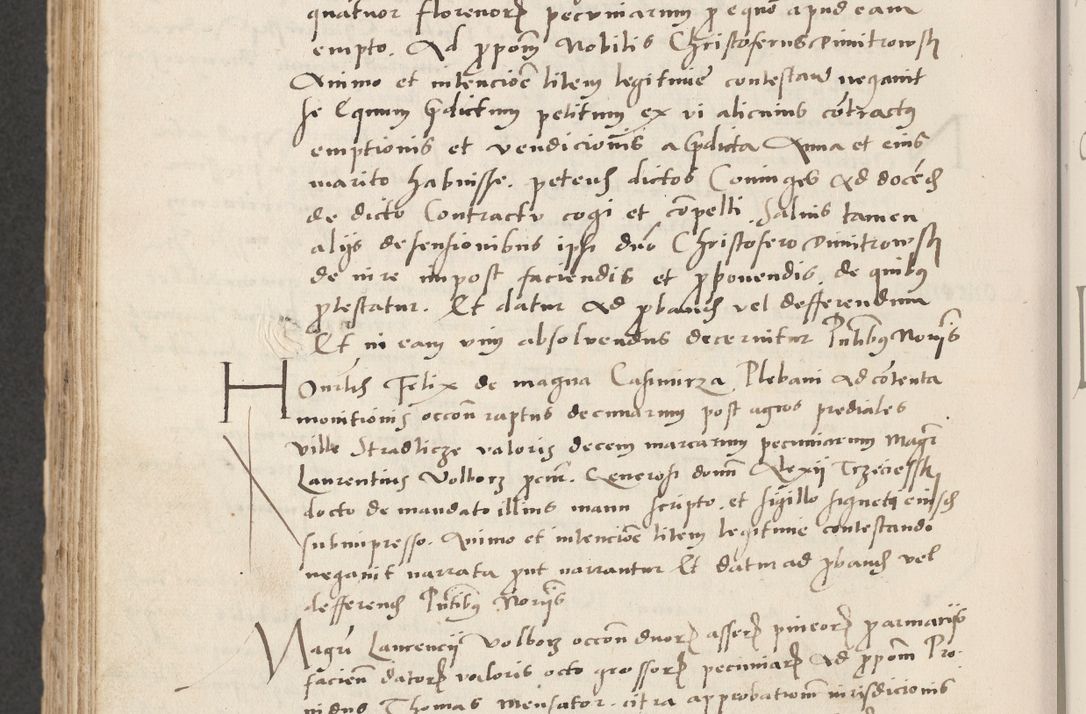 quatuor florenorum pecuniarum pro equo apud eam
empto. Ad propom Nobilis Christoferus Dimitrowsky
Animo et intencione litem legitime contestan negavit
se Equum predictum petitum ex vi alicuius contractus
emptionis et vendicionis a predicta Anna et eius
marito habuisse. petens dictos Coniuges ad docend
de dicto Contractu cogi et compelli Salvis tamen
alijs defensionibus ipsi dno Christofero Dimitrowsky
de iure impost faciendis et proponendis. de quibus
protestatur. Et datur ad proband vel defferendum
Et in eam vim absolvendus decernitur Pntibus Norijs
Honrlis Felix de magna Casimirza Plebani ad contenta
monitionis occon raptus decimarum post agros prediales
ville Stradlicze valoris decem marcarum pecuniarum Magr
Laurentius Volborz pcur. Generosi domi Alexij Trzeciessky
docto de mandato illius manu scripto. et sigillo signeti eiusd
subimpresso. Animo et intencione litem legitime contestando
negavit narrata prout narrantur Et datur ad proband vel
defferend Pntibus Norijs
Magri Laurencij Volborz occon duorum asserum pineorum pro armarijs
facien datorum valoris octo grossorum pecuniarum Ad propom Pro-
nidus Thomas Mensator. citra approbationem iurisdicionis